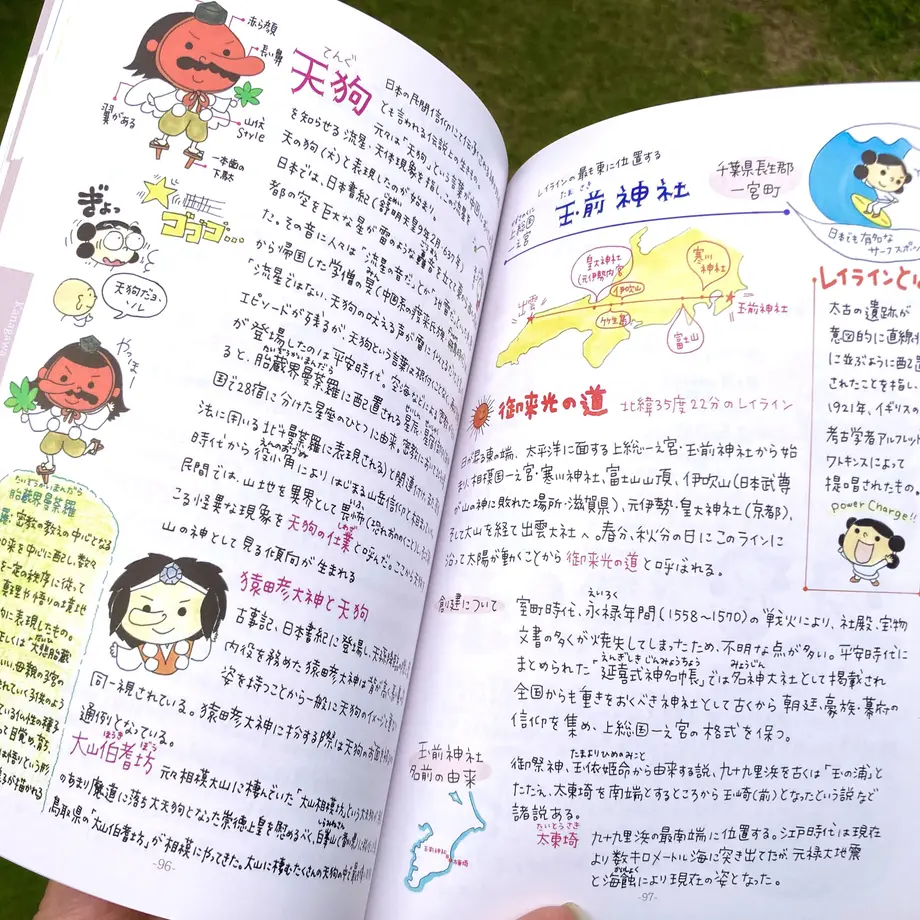 赤ら顔
長い鼻
翼がある
山伏
Style
一本歯の
下駄
てんぐ
天狗
ぎょっ
ゴゴゴ…
天狗だョ、
やっほー
Kanagawa
日本の民間信仰に
とも言われる伝説上の生きもの。
元々は「天狗」という言葉が
を知らせる流星、天体現象を指し、この流星を
天の狗(犬)と表現したのが始まり。
日本では、日本書紀(舒明天皇9年2月、637年)
都の空を巨大な星が雷のような轟音を立て
だ。その音に人々は「流星の音だ」とか
から帰国した学僧の旻
「流星ではない。天狗の吠える声が雷に似ている
エピソードが残るが、天狗という言葉は
が登場したのは平安時代。空海などによる
たいぞうかいまんだら
ると、胎蔵界曼荼羅に配置される星辰・星宿
国で28宿に分けた星座のひとつに由来、密教に
法に用いる北斗曼荼羅に表現される)と関連
えんのおづの
時代から役小角によりはじまる山岳信仰と相
民間では、山地を異界として畏怖
ころ怪異な現象を天狗の仕業と呼んだ。ここから
山の神として見る傾向が生まれる
猿田彦大神と天狗
古事記、日本書紀に登場し、天孫
内役を務めた猿田彦大神は背が高く
姿を持つことから一般に天狗のイメージと
同一視されている。猿田彦大神に扮する際は天狗のお面を
通例となっている。
ほうき ぼう
大山伯耆坊
元々相模大山に棲んでいた「大山相模坊」という大天狗が
のあまり魔道に落ち大天狗となった崇徳上皇を慰めるべく白峯山
鳥取県の「大山伯耆坊」が相模にやってきた。大山に棲むたくさんの天狗の中で
たいぞうかいまんだら
胎蔵界曼荼羅
密教の教えの中心となる
如来を中心に配し、数々
を一定の秩序に従って
真理や悟りの境地
的に表現したもの。
しくは「大悲胎蔵
いい、母親の子宮の
まれていく子供のよう
ている仏性の種子
って目覚め、育ち、
は悟りという形
るが描かれる
-96-
レイラインの最も東に位置する
上総国
一之宮
たま さき
玉前神社
千葉県長生郡
一宮町
日本でも有名な
サーフスポット
出雲
皇大神社
(元伊勢内宮)
伊吹山
竹生島
寒川
神社
富士山
玉前神社
御来光の道
北緯35度22分のレイライン
日が昇る東の端、太平洋に面する上総一之宮・玉前神社から始
まり、相模国一之宮・寒川神社、富士山山頂、伊吹山(日本武尊
が山の神に敗れた場所・滋賀県)、元伊勢・皇大神社(京都)、
そして大山を経て出雲大社へ。春分、秋分の日にこのラインに
沿って太陽が動くことから御来光の道と呼ばれる。
レイラインとは
太古の遺跡が
意図的に直線状
に並ぶように配置
されたことを指し、
1921年、イギリスの
考古学者アルフレッド・
ワトキンスによって
提唱されたもの。
Power Charge!!
創建について
えいろく
室町時代、永禄年間(1558〜1570)の戦火により、社殿、宝物
文書の多くが焼失してしまったため、不明な点が多い。平安時代に
えんぎしきじんみょうちょう みょうじん
まとめられた「延喜式神名帳」では名神大社として掲載され
全国からも重きをおくべき神社として古くから朝廷、豪族、幕府の
信仰を集め、上総国一之宮の格式を保つ。
玉前神社
名前の由来
たまよりひめのみこと
御祭神、玉依姫命から由来する説、九十九里浜を古くは「玉の浦」と
たたえ、太東埼を南端とするところから玉崎(前)となったという説など
諸説ある。
たいとうさき
太東埼
九十九里浜の最南端に位置する。江戸時代は現在
より数キロメートル海に突き出てたが元禄大地震
と海蝕により現在の姿となった。
玉前神社
太東埼
-97-